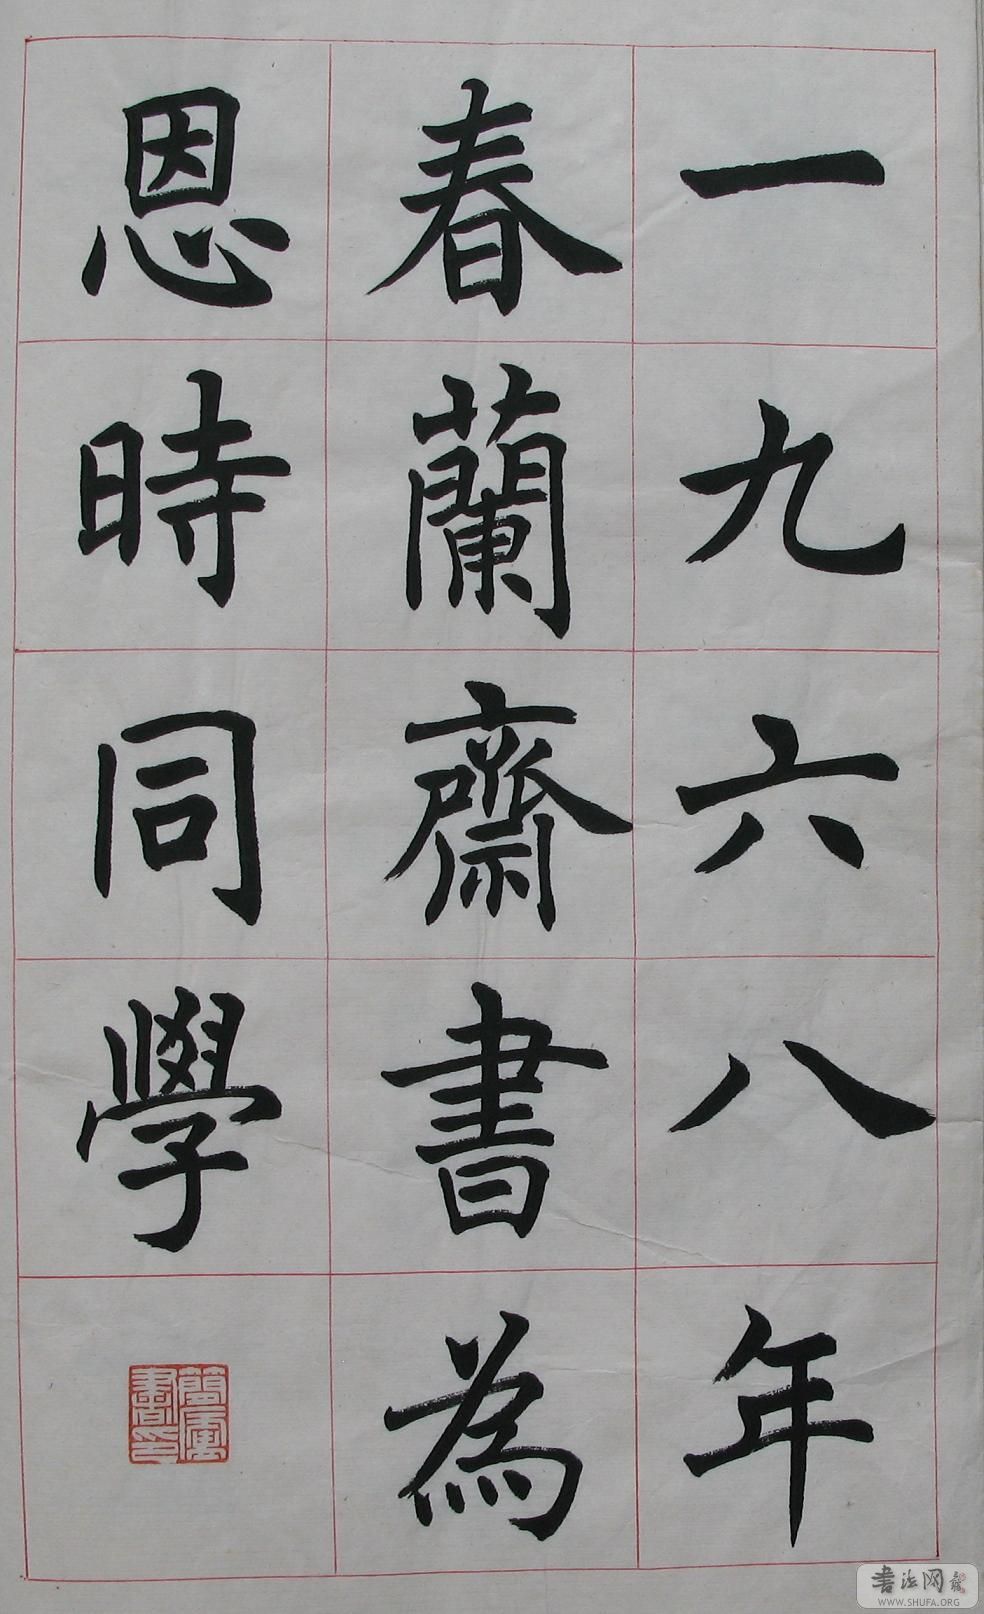 一九六八年
春蘭齋書為
恩時同學
書法网
WWW.SHUFA.ORG